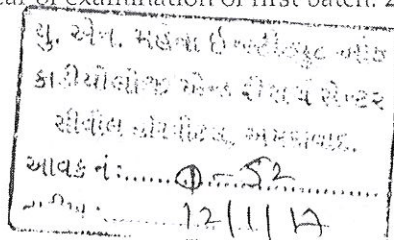 ear of examination of first batch: 2
યુ. એન. મહેતા ઇન્સ્ટીટ્યુટ ઓફ
કાર્ડીયોલોજી એન્ડ રીસર્ચ સેન્ટર
સીવીલ હોસ્પીટલ, અમદાવાદ.
આવક નં:
તારીખ: 12/1/17